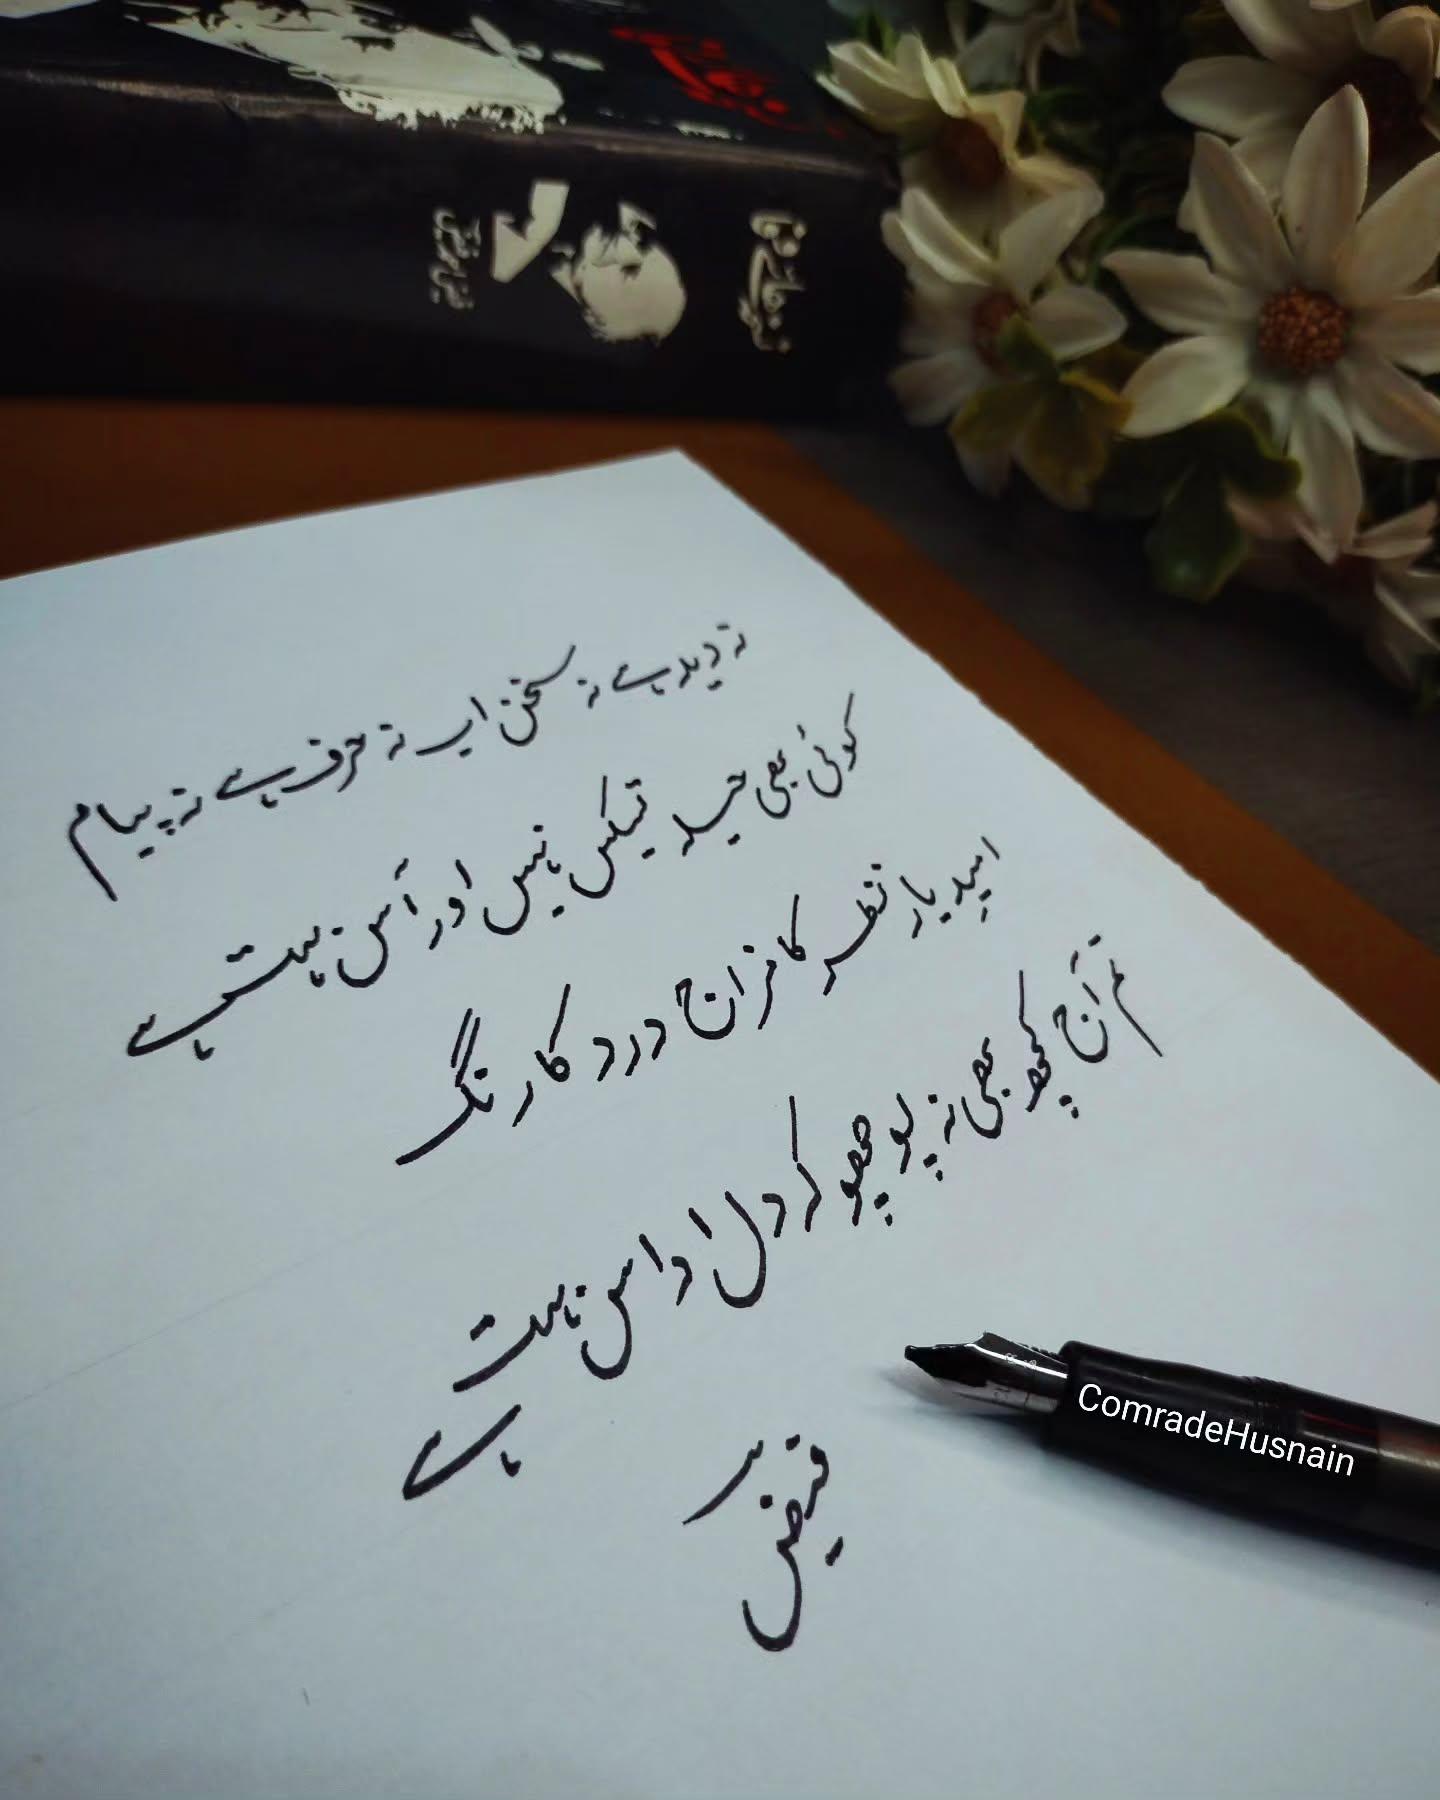 نسخہ ہائے وفا
فیض احمد فیض
نہ دید ہے نہ سخن اب نہ حرف ہے نہ پیام
کوئی بھی حیلہ تسکیں نہیں اور آس بہت ہے
امیدِ یار نظر کا مزاج درد کا رنگ
تم آج کچھ بھی نہ پوچھو کہ دل اداس بہت
ہے
فیض
ComradeHusnain